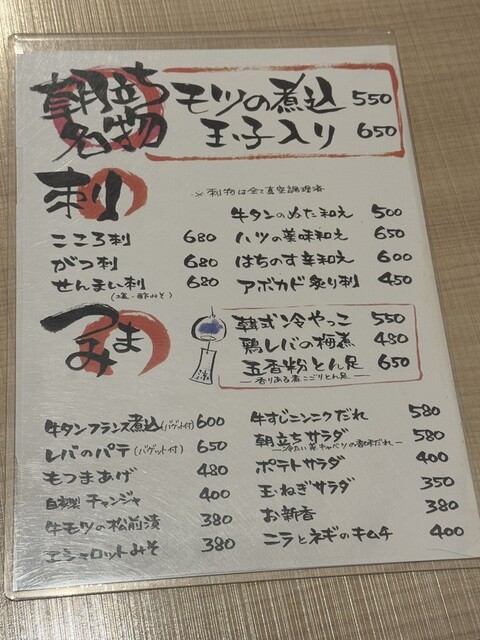 朝立ち
名物
モツの煮込 550
玉子入り 650
刺
※刺物は全て真空調理済
こころ刺 680
がつ刺 680
せんまい刺 680
(塩・酢みそ)
牛タンのぬた和え 500
ハツの薬味和え 650
はちのす辛和え 600
アボカド炙り刺 450
つまみ
涼
韓式冷やっこ 550
鶏レバの梅煮 480
五香粉とん足 650
ー香りある煮こごりとん足ー
牛タンフランス煮込(バゲット付) 600
レバのパテ(バゲット付) 650
もつまあげ 480
自家製チャンジャ 400
牛モツの松前漬 380
エシャロットみそ 380
牛すじニンニクだれ 580
朝立ちサラダ 580
ー冷たい蒸キャベツの香味だれー
ポテトサラダ 400
玉ねぎサラダ 350
お新香 380
ニラとネギのキムチ 400